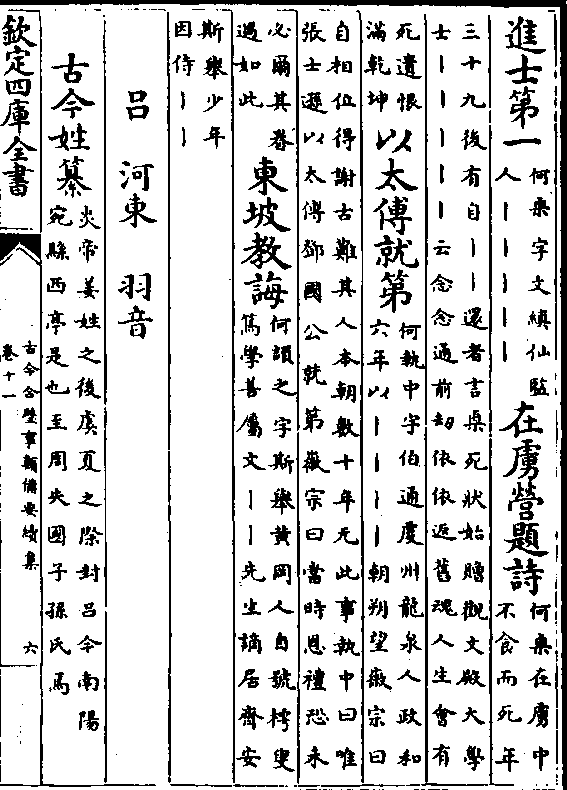 進士第一何㮚字文縝仙監
人丨丨丨丨在虜營題詩何㮚在虜中
不食而死年
三十九後有自丨丨還者言㮚死狀始贈觀文殿大學
士丨丨丨丨丨云念念通前劫依依返舊魂人生會有
死遺恨
滿乾坤以太傅就第何執中字伯通處州龍泉人政和
六年以丨丨丨丨朝朔望徽宗曰
自相位得謝古難其人本朝數十年无此事執中曰唯
張士遜以太傅鄧國公就第徽宗曰當時恩禮恐未
必爾其眷
遇如此東坡教誨何頡之字斯舉黄岡人自號樗叟
篤學善屬文丨丨先生謫居齊安
斯舉少年
因侍丨丨
呂 河東 羽音
古今姓纂炎帝姜姓之後虞夏之際封吕今南陽
宛縣西亭是也至周失國子孫氏焉
欽定四庫全書
古今合璧事類備要續集
卷十一
六